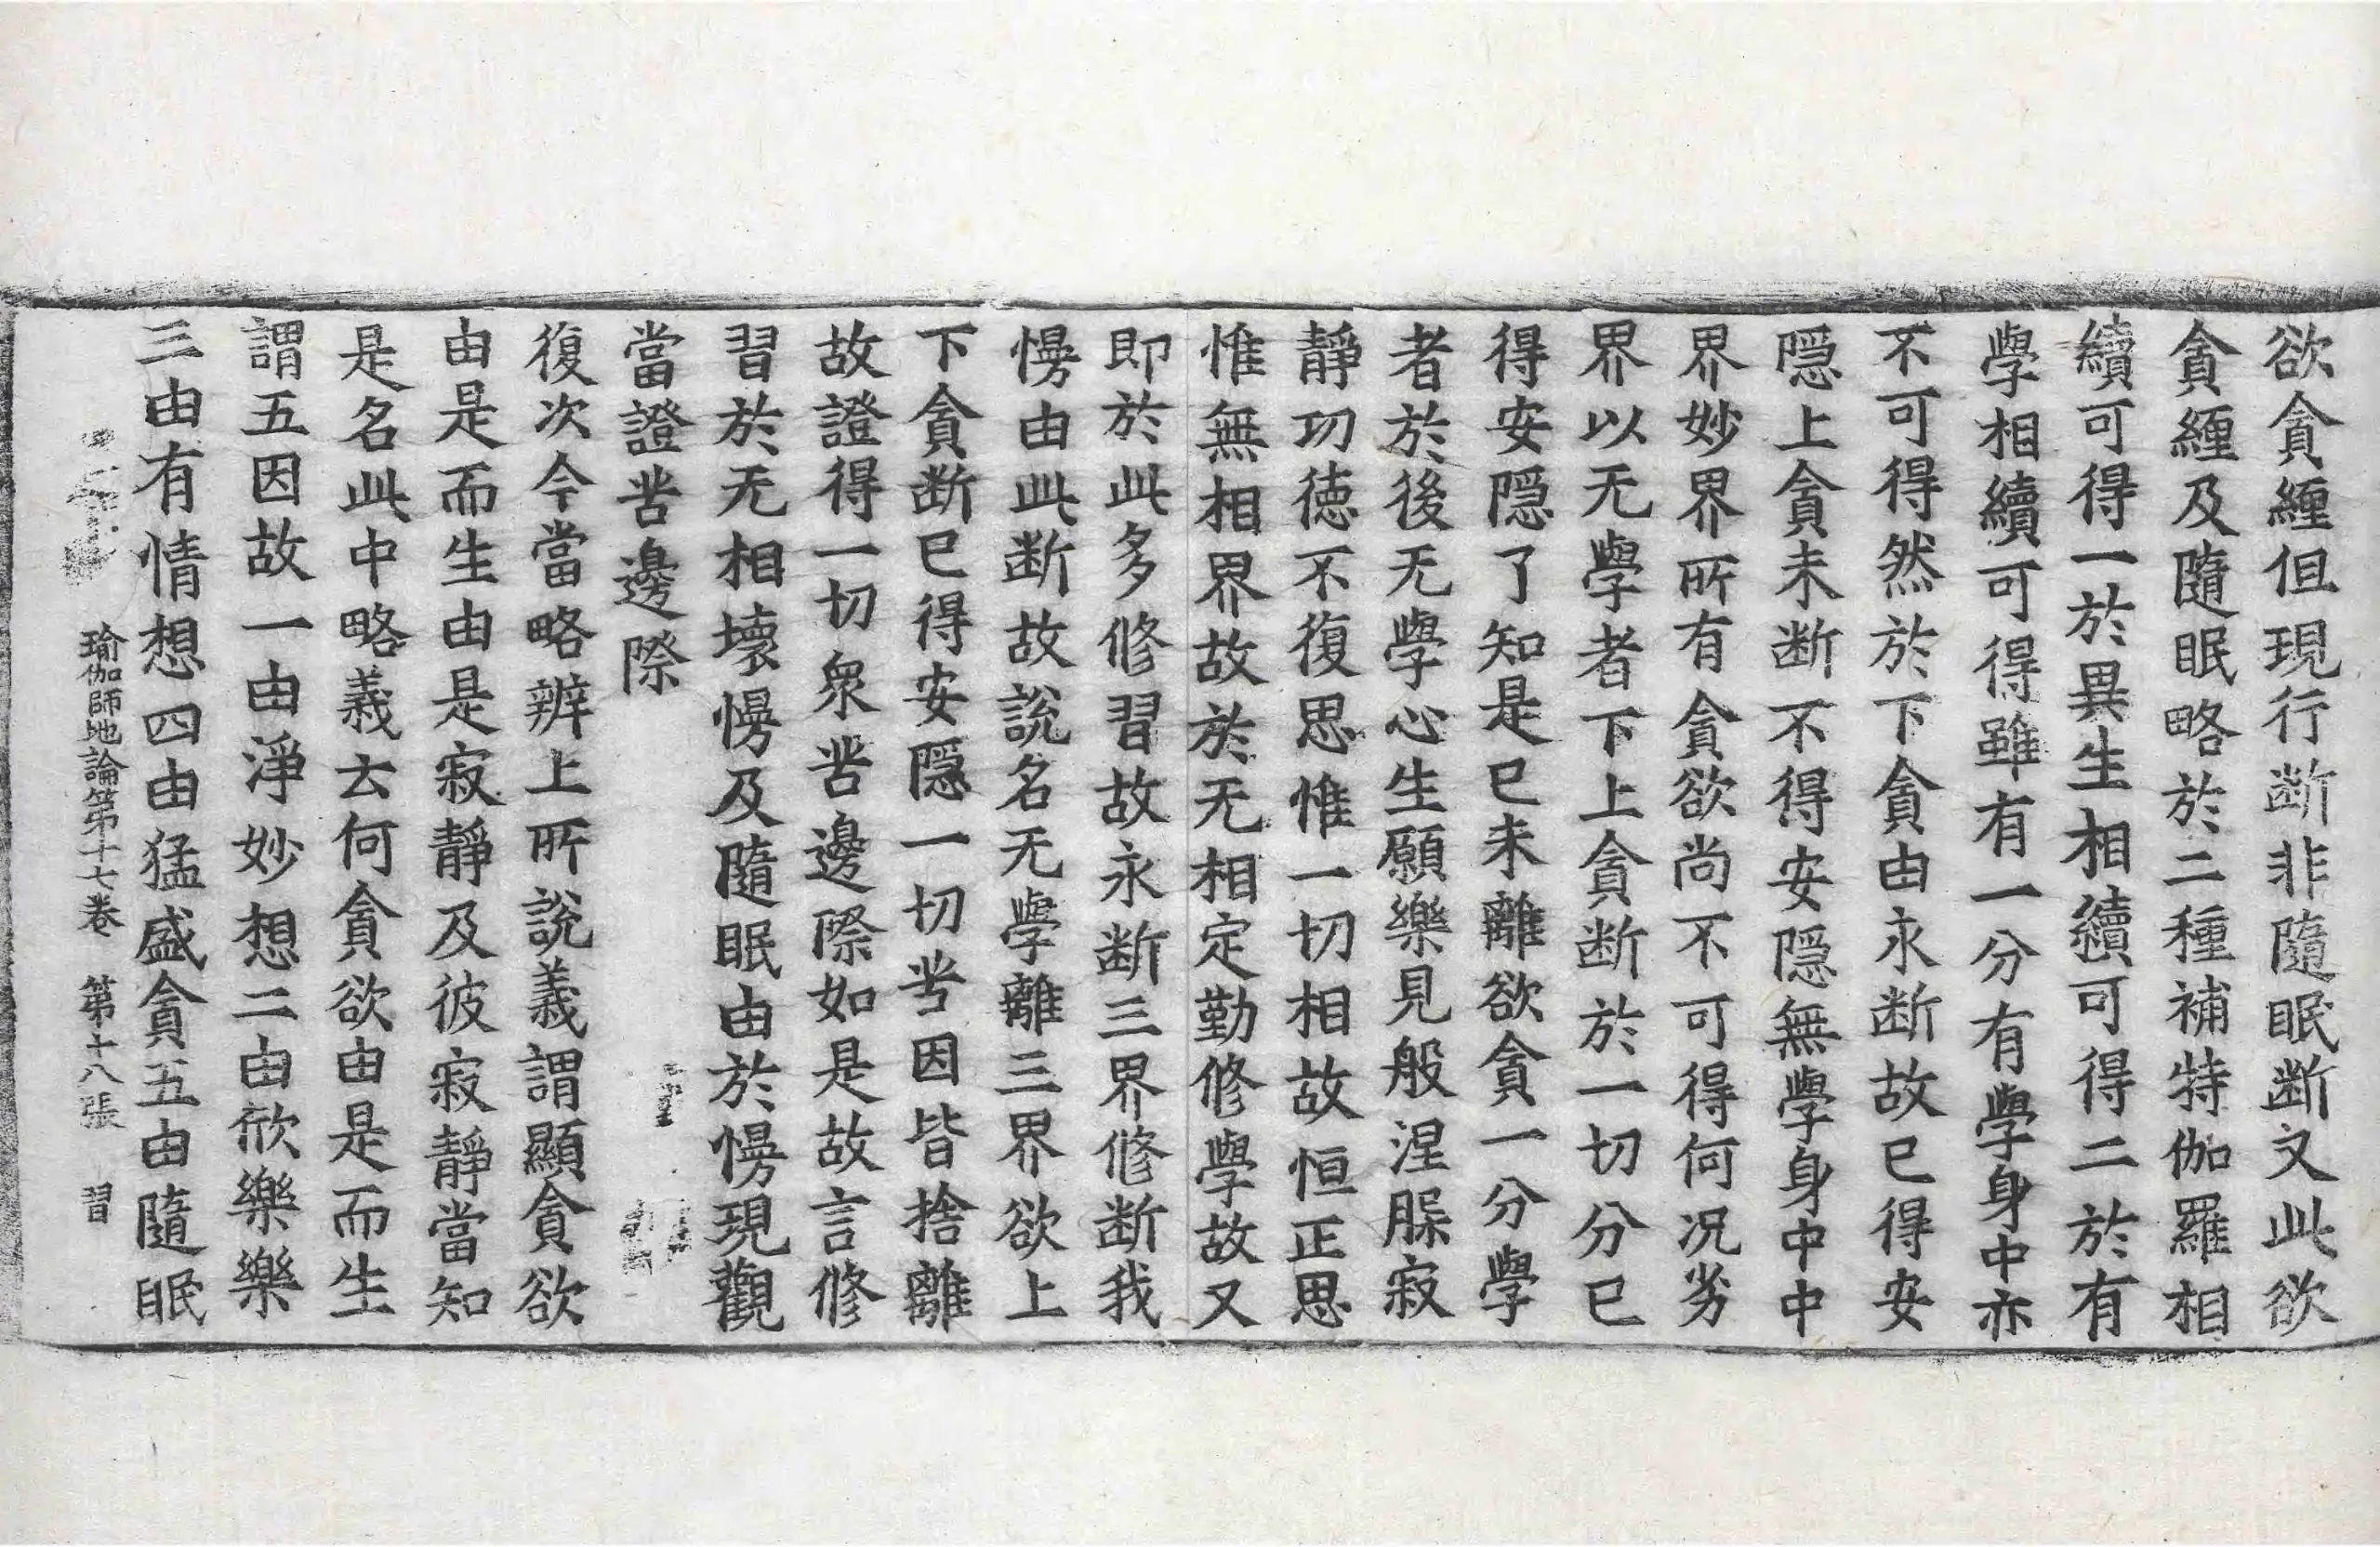 欲貪纏但現行断非隨眠断又此欲
貪纏及隨眠略於二種補特伽羅相
續可得一於異生相續可得二於有
學相續可得雖有一分有學身中亦
不可得然於下貪由永断故已得安
隱上貪未断不得安隱無學身中中
界妙界所有貪欲尚不可得何況劣
界以无學者下上貪断於一切分已
得安隱了知是已未離欲貪一分學
者於後无學心生願樂見般涅槃寂
靜功德不復思惟一切相故恒正思
惟無相界故於无相定勤修學故又
即於此多修習故永断三界修断我
慢由此断故說名无學離三界欲上
下貪断已得安隱一切苦因皆捨離
故證得一切衆苦邊際如是故言修
習於无相壞慢及隨眠由於慢現觀
當證苦邊際
復次今當略辨上所說義謂顯貪欲
由是而生由是寂靜及彼寂靜當知
是名此中略義云何貪欲由是而生
謂五因故一由淨妙想二由欣樂樂
三由有情想四由猛盛貪五由隨眠
瑜伽師地論第十七卷 第十八張 習